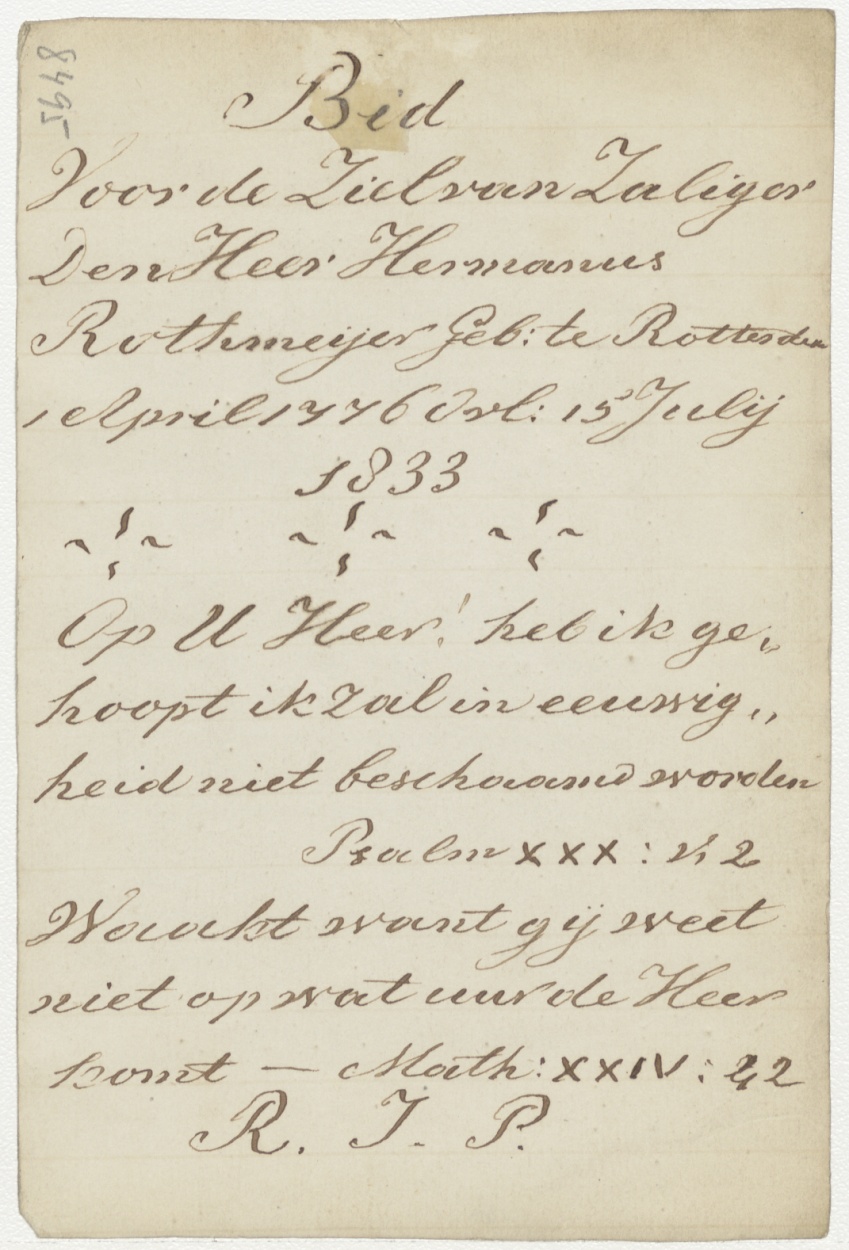 8495
Bid
Voor de Ziel van Zaliger
Den Heer Hermanus
Rothmeijer Geb: te Rotterdam
1 April 1776 Ovl: 15 Julij
1833
Op U Heer! heb ik ge„
hoopt ik Zal in eeuwig„
heid niet beschaamd worden
Psalm XXX: v. 2
Waakt want gij weet
niet op wat uur de Heer
komt — Math: XXIV: 42
R. I. P.